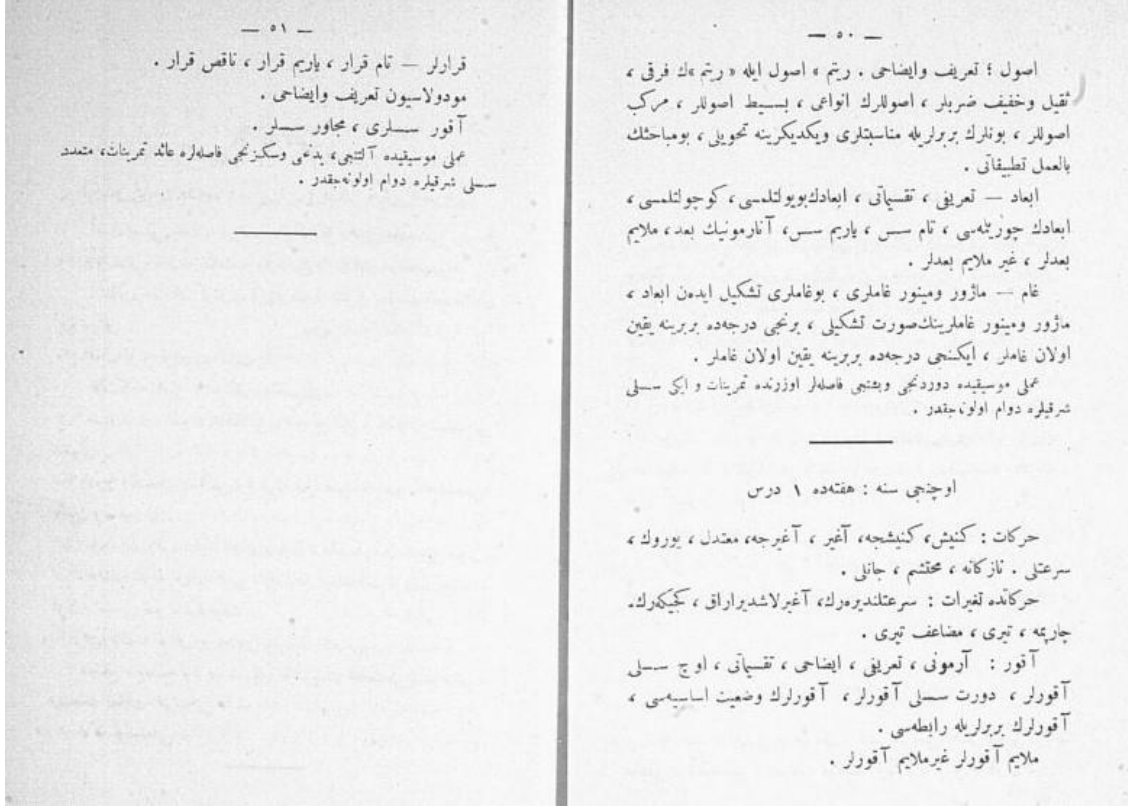 — ٥٠ —
اصول ؛ تعريف وايضاحى . ريتم » اصول ايله « ريتم »ك فرقى ،
ثقيل وخفيف ضربلر ، اصوللرك انواعى ، بسيط اصوللر ، مركب
اصوللر ، بونلرك بربرلريله مناسبتلرى ويكديكرينه تحويلى ، بومباحثك
بالعمل تطبيقاتى .
ابعاد — تعريفى ، تقسيماتى ، ابعادك بويولتلمسى ، كوچولتلمسى ،
ابعادك چوريلمه‌سى ، تام سس ، ياريم سس ، آنارمونيك بعد ، ملايم
بعدلر ، غير ملايم بعدلر .
غام — ماژور ومينور غاملرى ، بوغاملرى تشكيل ايدەن ابعاد ،
ماژور ومينور غاملرينك صورت تشكيلى ، برنجى درجه‌ده بربرينه يقين
اولان غاملر ، ايكنجى درجه‌ده بربرينه يقين اولان غاملر .
عملى موسيقيده دوردنجى وبشنجى فاصله‌لر اوزرنده تمرينات و ايكى سسلى
شرقيلره دوام اولونه‌جقدر .
اوچنجى سنه : هفته‌ده ١ درس
حركات : كنيش، كنيشجه، آغير ، آغيرجه، معتدل ، يوروك ،
سرعتلى . نازكانه ، محتشم ، جانلى .
حركاتده تغيرات : سرعتلنديره‌رك، آغيرلاشديراراق ، كجيكه‌رك.
چارپمه ، تيرى ، مضاعف تيرى .
آقور : آرمونى ، تعريفى ، ايضاحى ، تقسيماتى ، اوچ سسلى
آقورلر ، دورت سسلى آقورلر ، آقورلرك وضعيت اساسيه‌سى ،
آقورلرك بربرلريله رابطه‌سى .
ملايم آقورلر غيرملايم آقورلر .
— ٥١ —
قرارلر — تام قرار ، ياريم قرار ، ناقص قرار .
مودولاسيون تعريف وايضاحى .
آقور سسلرى ، مجاور سسلر .
عملى موسيقيده آلتنجى، يدنجى وسكزنجى فاصله‌لره عائد تمرينات، متعدد
سسلى شرقيلره دوام اولونه‌جقدر .